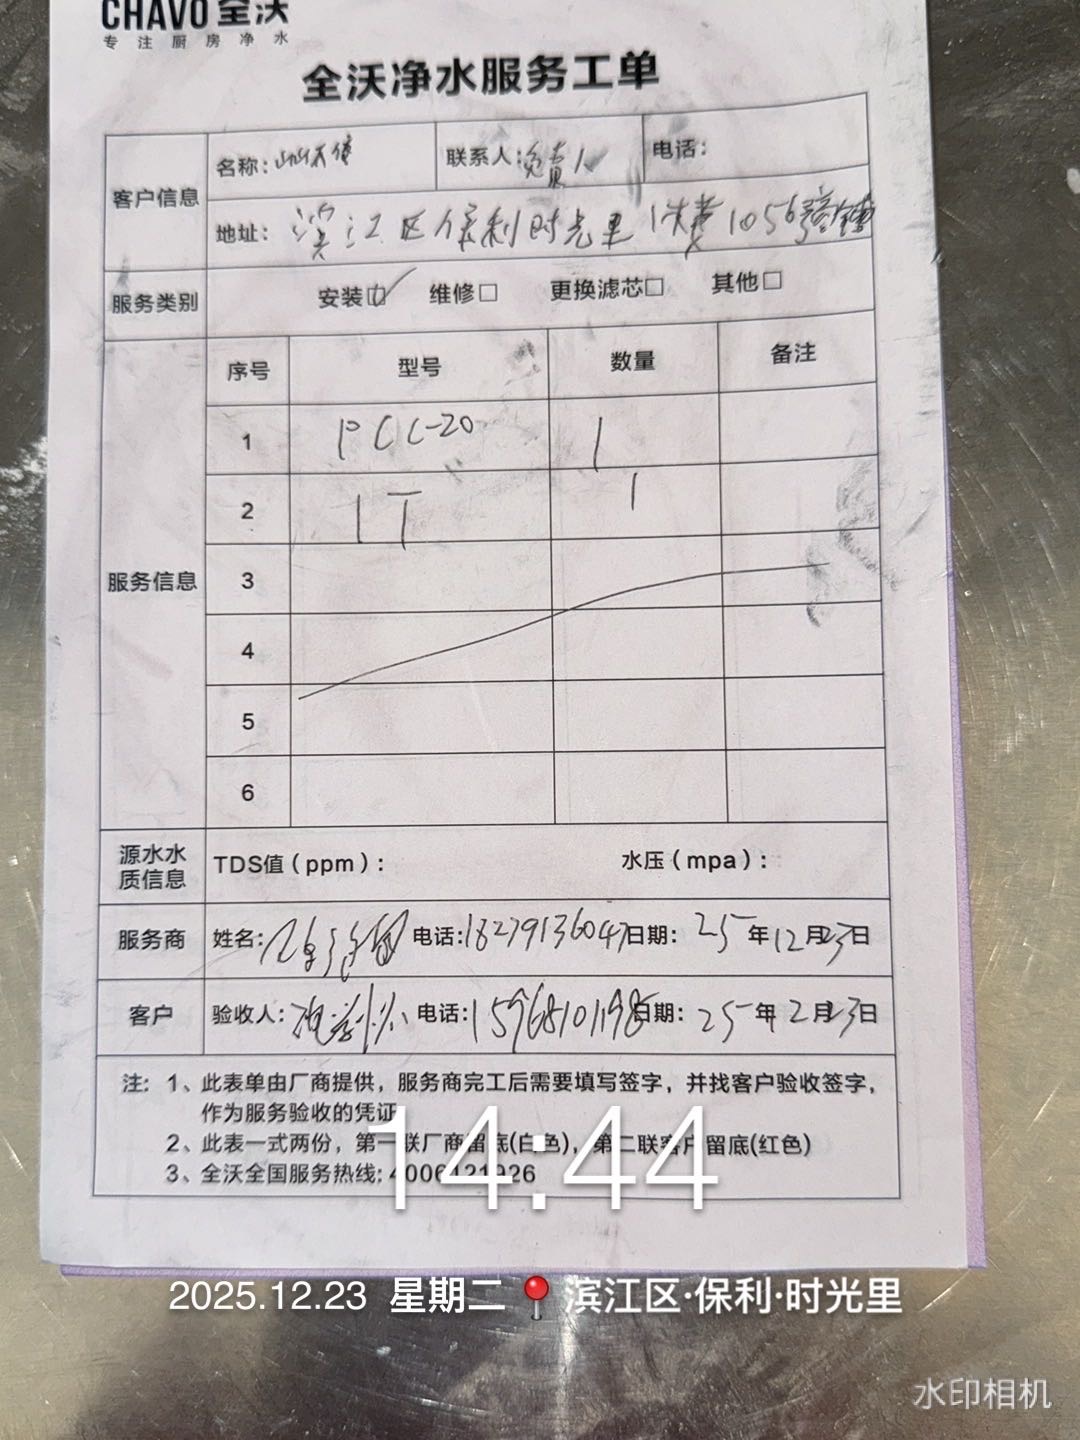 CHAVO 全沃
专注厨房净水
全沃净水服务工单
客户信息 名称： 联系人：负责人 电话：
地址：滨江区保利时光里 1056号
服务类别 安装☑ 维修□ 更换滤芯□ 其他□
服务信息 序号 型号 数量 备注
1 PCC-20 1
2 1T 1
3
4
5
6
源水水质信息 TDS值（ppm）： 水压（mpa）：
服务商 姓名： 电话：18279136047 日期：25年12月23日
客户 验收人： 电话：15968101198 日期：25年2月23日
注：1、此表单由厂商提供，服务商完工后需要填写签字，并找客户验收签字，
作为服务验收的凭证
2、此表一式两份，第一联厂商留底(白色)，第二联客户留底(红色)
3、全沃全国服务热线：4006121926
14:44
2025.12.23 星期二 滨江区·保利·时光里
水印相机